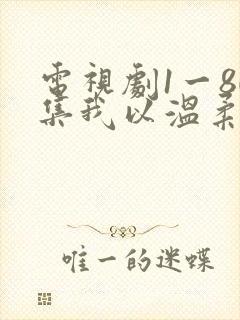 電視劇1一8
集我以溫柔
唯一的迷蝶